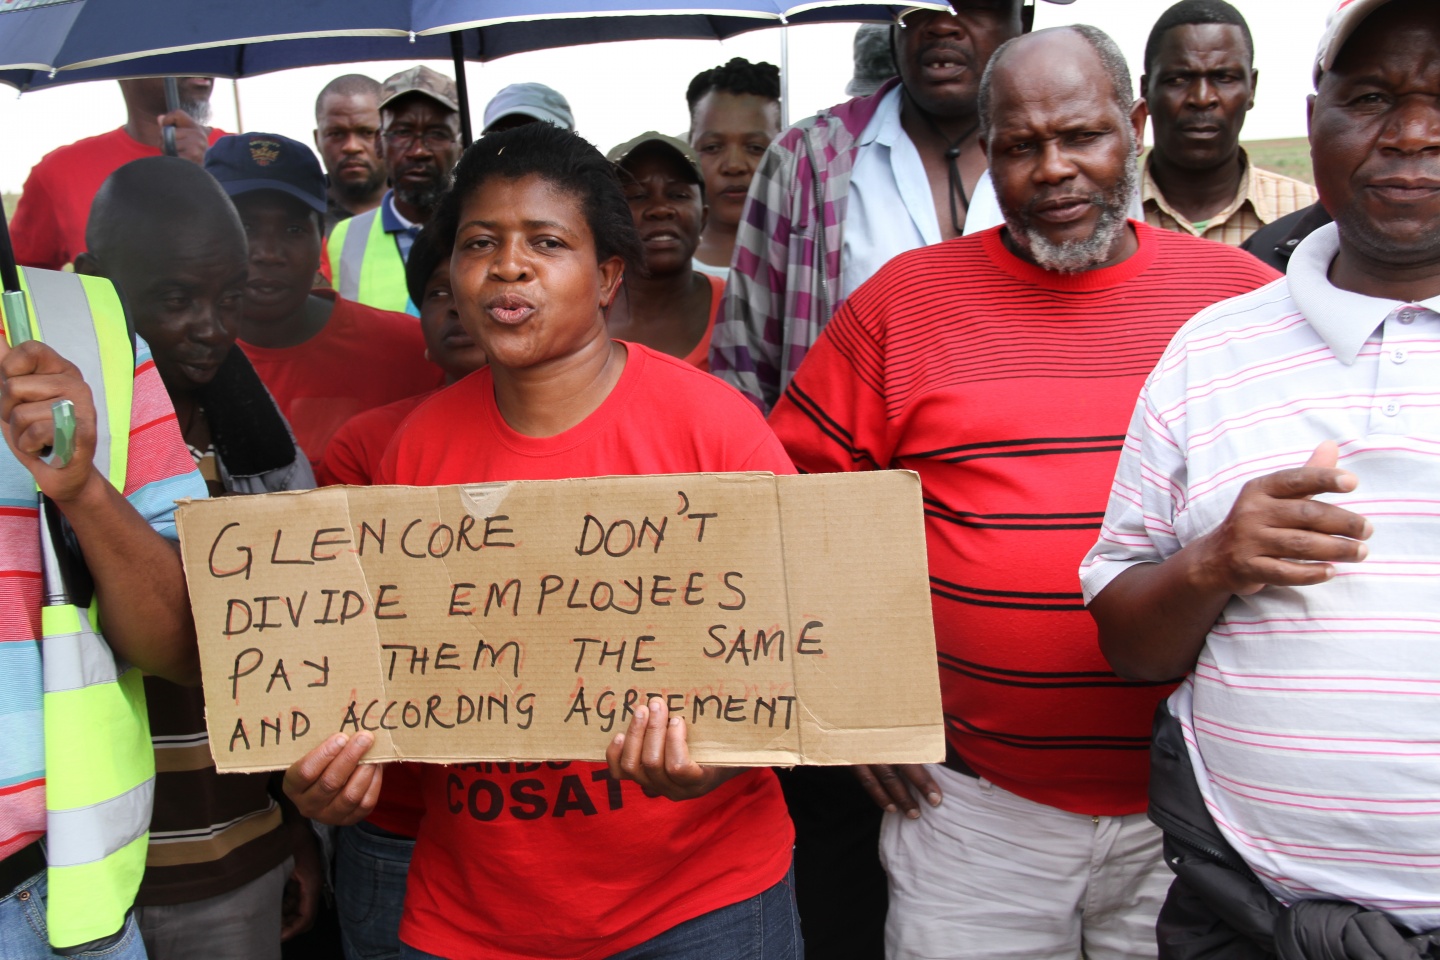 GLENCORE DON'T
DIVIDE EMPLOYEES
PAY THEM THE SAME
AND ACCORDING AGREEMENT
COSAT